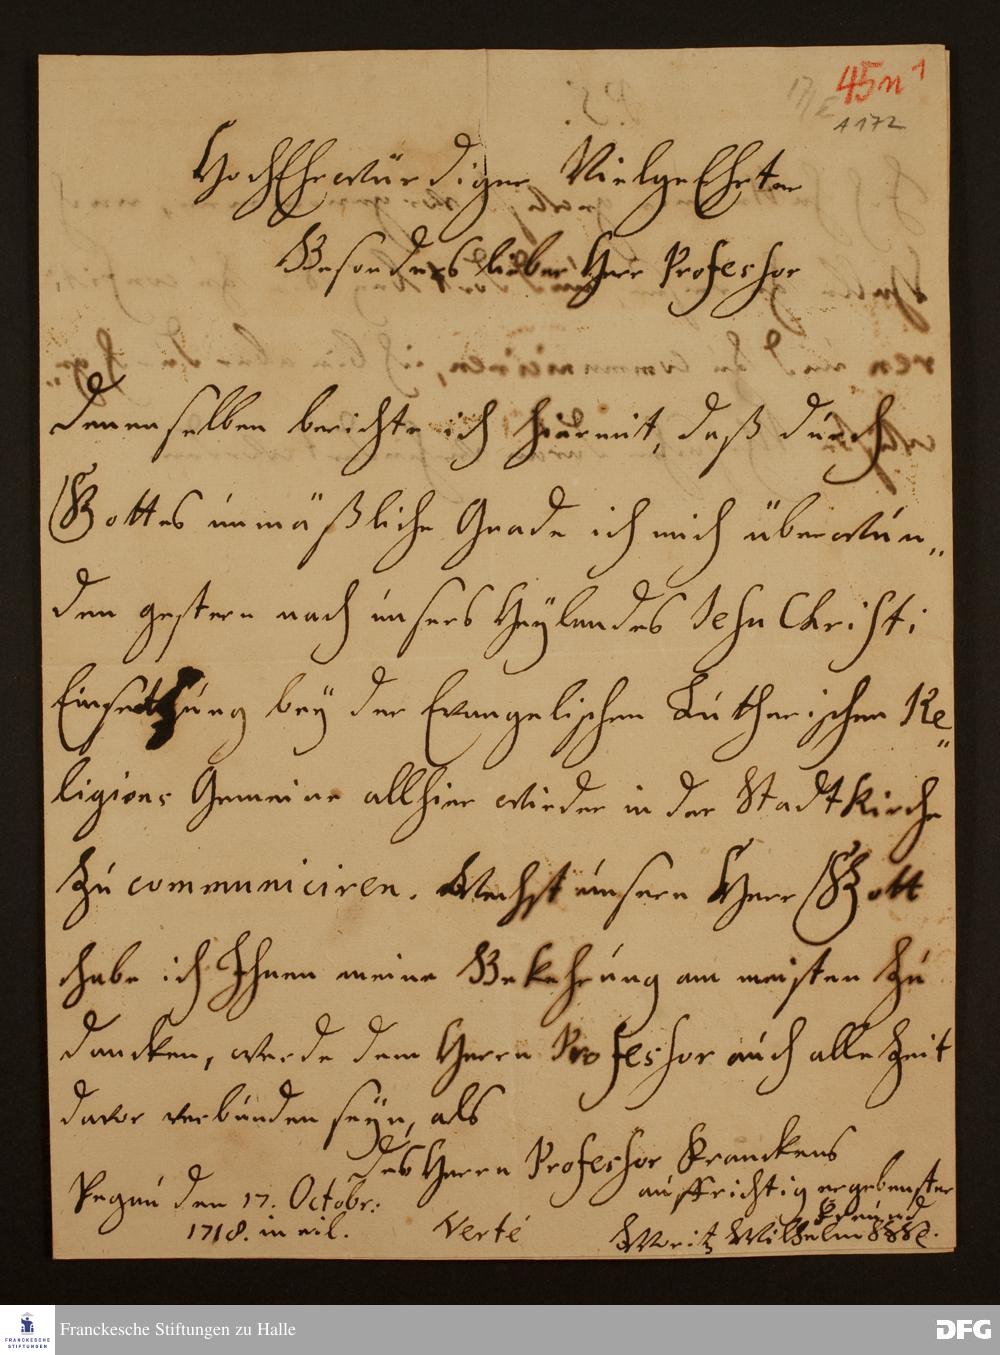 45n 1
A 172
HochEhrwürdiger VielgeEhrter
Besonders lieber Herr Professor
denenselben berichte ich hiermit, daß durch
Gottes unmäßliche Gnade ich mich überwun„
den gestern nach unsers Heÿlandes Jesu Christi
Einsetzung beÿ der Evangelischen Lutherischen Re„
ligions Gemeine allhier wieder in der Stadtkirche
zu communiciren. Nechst unsern Herr Gott
habe ich Ihnen meine Bekehrung am meisten zu
dancken, werde dem Herrn Professor auch alle Zeit
davor verbunden seÿn, als
des Herrn Professor Franckens
auffrichtig ergebenster
Freund
Pegau den 17. Octobr:
1718. in eil.
Verté
Moritz Wilhelm
Franckesche Stiftungen zu Halle
FRANCKESCHE
STIFTUNGEN
DFG